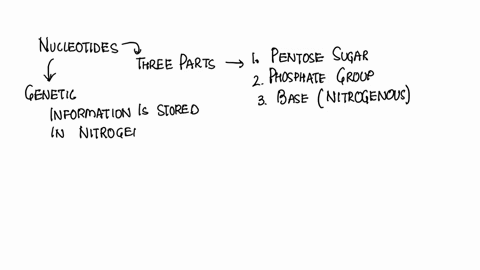 NUCLEOTIDES
THREE PARTS → 1. PENTOSE SUGAR
2. PHOSPHATE GROUP
3. BASE (NITROGENOUS)
GENETIC
INFORMATION IS STORED
IN NITROGEI